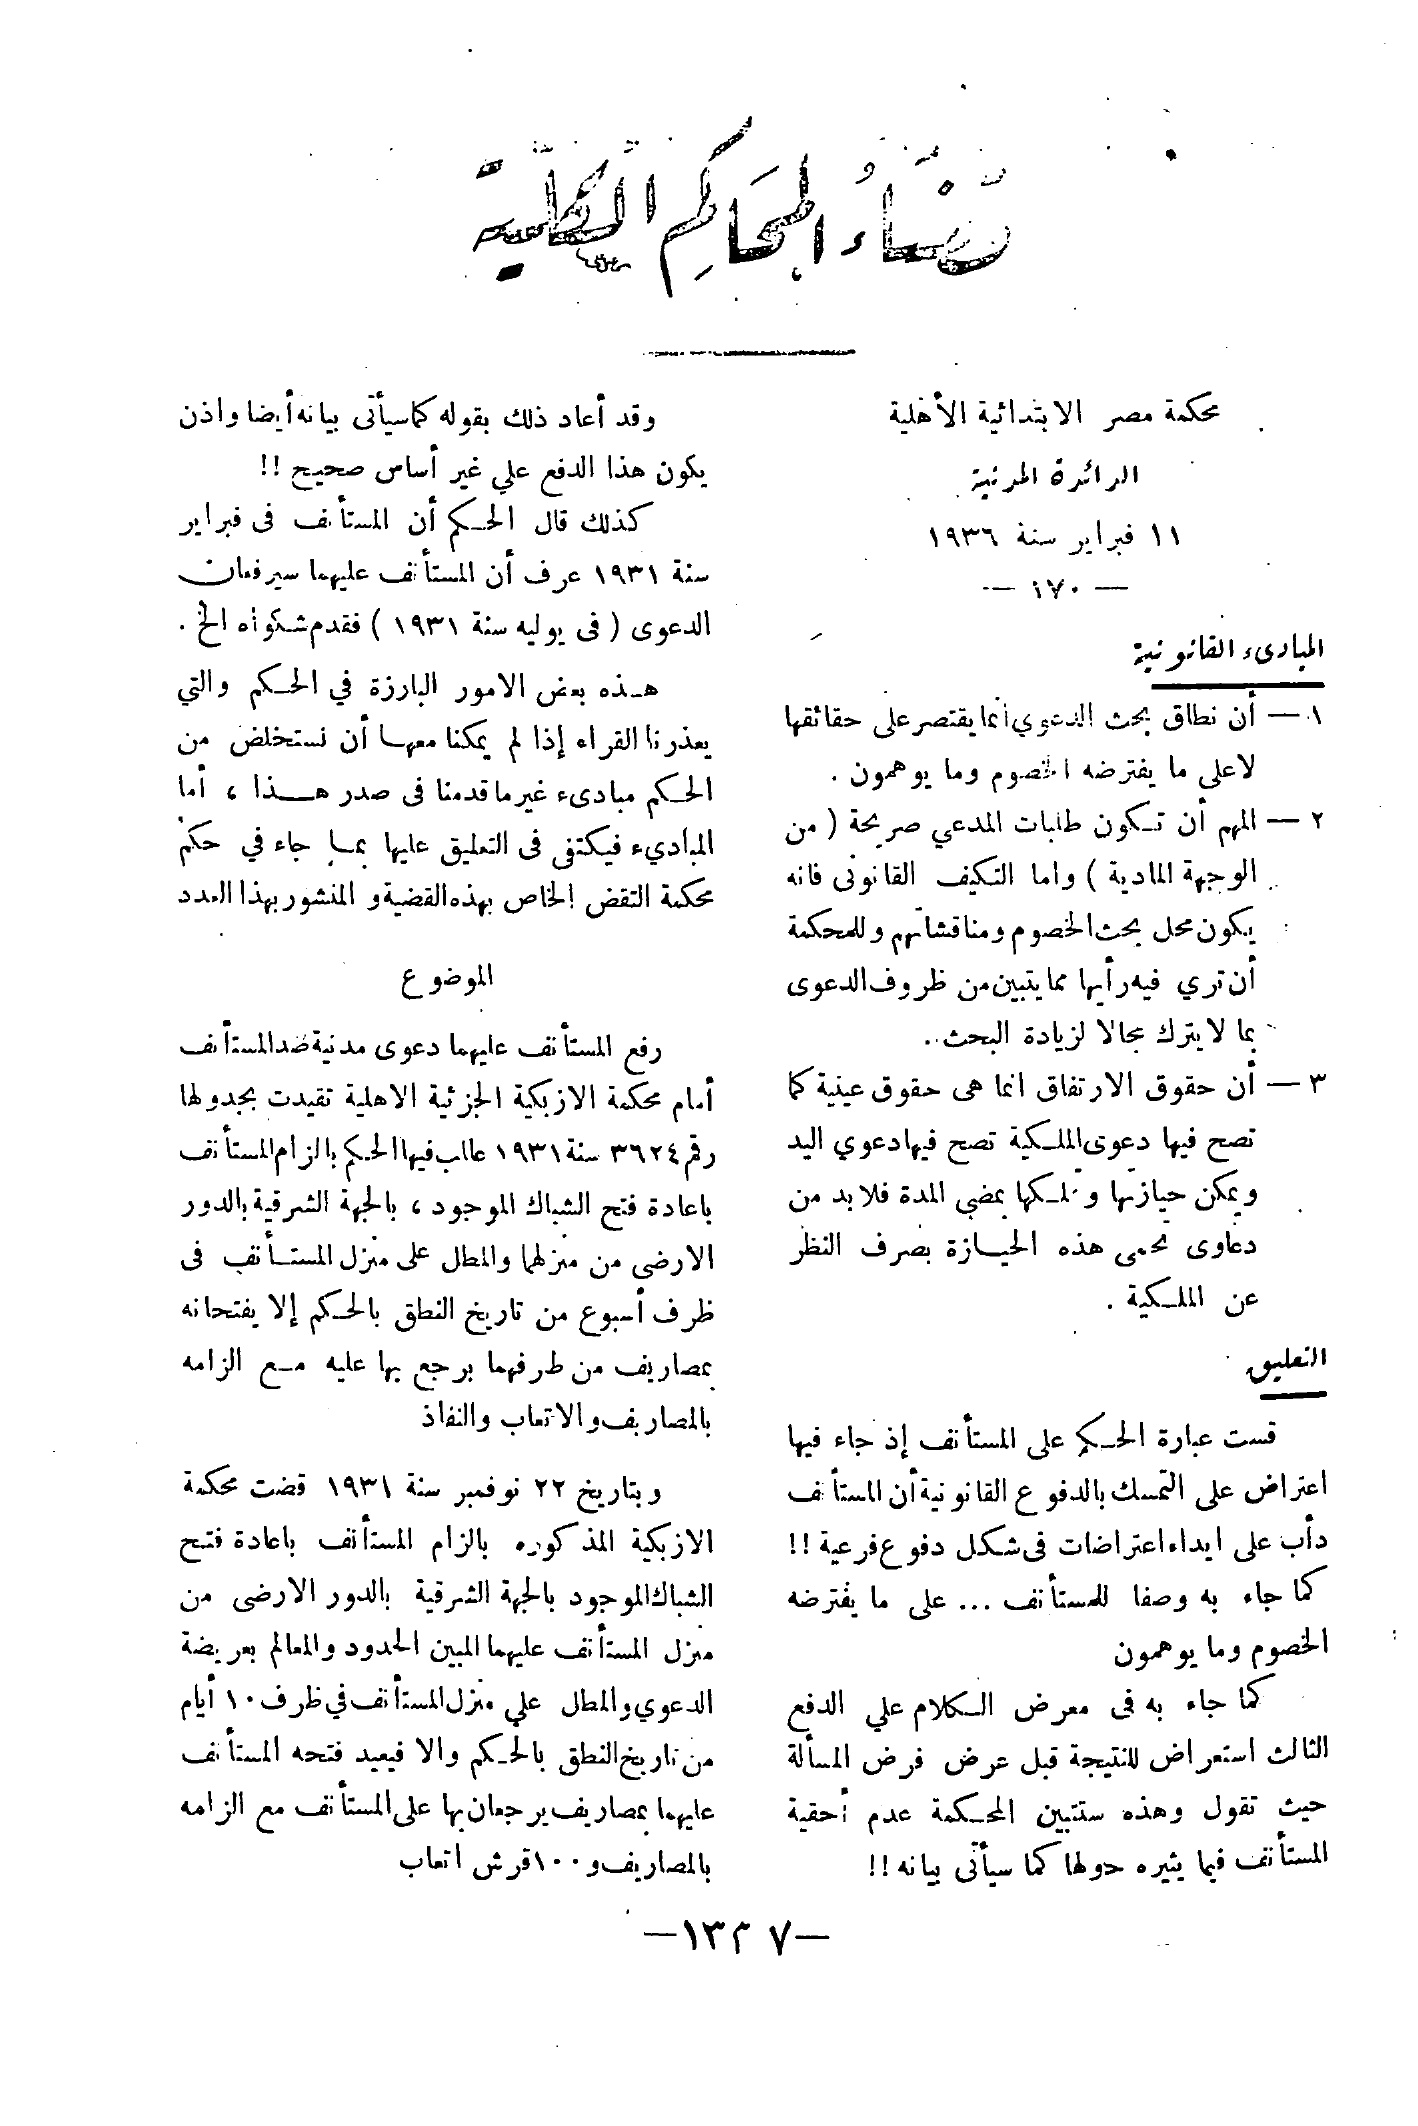 قضاء المحاكم الكلية
محكمة مصر الابتدائية الأهلية
الدائرة المدنية
١١ فبراير سنة ١٩٣٦
— ١٧٠ —
المبادىء القانونية
١ — أن نطاق بحث الدعوي انما يقتصر على حقائقها
لا على ما يفترضه الخصوم وما يوهمون .
٢ — المهم أن تكون طلبات المدعي صريحة ( من
الوجهة المادية ) واما التكيف القانونى فانه
يكون محل بحث الخصوم ومناقشاتهم وللمحكمة
أن تري فيه رأيها مما يتبين من ظروف الدعوى
بما لا يترك مجالا لزيادة البحث .
٣ — أن حقوق الارتفاق انما هى حقوق عينية كما
تصح فيها دعوى الملكية تصح فيها دعوي اليد
ويمكن حيازتها وتملكها بمضي المدة فلا بد من
دعاوى تحمى هذه الحيازة بصرف النظر
عن الملكية .
التعليق
قست عبارة الحكم على المستأنف إذ جاء فيها
اعتراض على التمسك بالدفوع القانونية أن المستأنف
دأب على ايداء اعتراضات فى شكل دفوع فرعية !!
كما جاء به وصفا للمستأنف ... على ما يفترضه
الخصوم وما يوهمون
كما جاء به فى معرض الكلام علي الدفع
الثالث استعراض للنتيجة قبل عرض فرض المسألة
حيث تقول وهذه ستتبين المحكمة عدم أحقية
المستأنف فيما يثيره حولها كما سيأتى بيانه !!
وقد أعاد ذلك بقوله كما سيأتى بيانه أيضا واذن
يكون هذا الدفع علي غير أساس صحيح !!
كذلك قال الحكم أن المستأنف فى فبراير
سنة ١٩٣١ عرف أن المستأنف عليهما سيرفعان
الدعوى ( فى يوليه سنة ١٩٣١ ) فقدم شكواه الخ .
هذه بعض الامور البارزة في الحكم والتي
يعذرنا القراء إذا لم يمكنا معها أن نستخلص من
الحكم مبادىء غير ما قدمنا فى صدر هذا ، أما
المباديء فيكتفى فى التعليق عليها بما جاء في حكم
محكمة النقض الخاص بهذه القضية والمنشور بهذا العدد
الموضوع
رفع المستأنف عليهما دعوى مدنية ضد المستأنف
أمام محكمة الازبكية الجزئية الاهلية تقيدت بجدولها
رقم ٣٦٢٤ سنة ١٩٣١ طلب فيها الحكم بالزام المستأنف
باعادة فتح الشباك الموجود ، بالجهة الشرقية بالدور
الارضى من منزلهما والمطل على منزل المستأنف فى
ظرف أسبوع من تاريخ النطق بالحكم إلا يفتحانه
بمصاريف من طرفهما يرجع بها عليه مع الزامه
بالمصاريف والاتعاب والنفاذ
وبتاريخ ٢٢ نوفمبر سنة ١٩٣١ قضت محكمة
الازبكية المذكوره بالزام المستأنف باعادة فتح
الشباك الموجود بالجهة الشرقية بالدور الارضى من
منزل المستأنف عليهما المبين الحدود والمعالم بعريضة
الدعوي والمطل علي منزل المستأنف في ظرف ١٠ أيام
من تاريخ النطق بالحكم والا فيعيد فتحه المستأنف
عليهما بمصاريف يرجعان بها على المستأنف مع الزامه
بالمصاريف و ١٠٠ قرش اتعاب
— ١٣٣٧ —